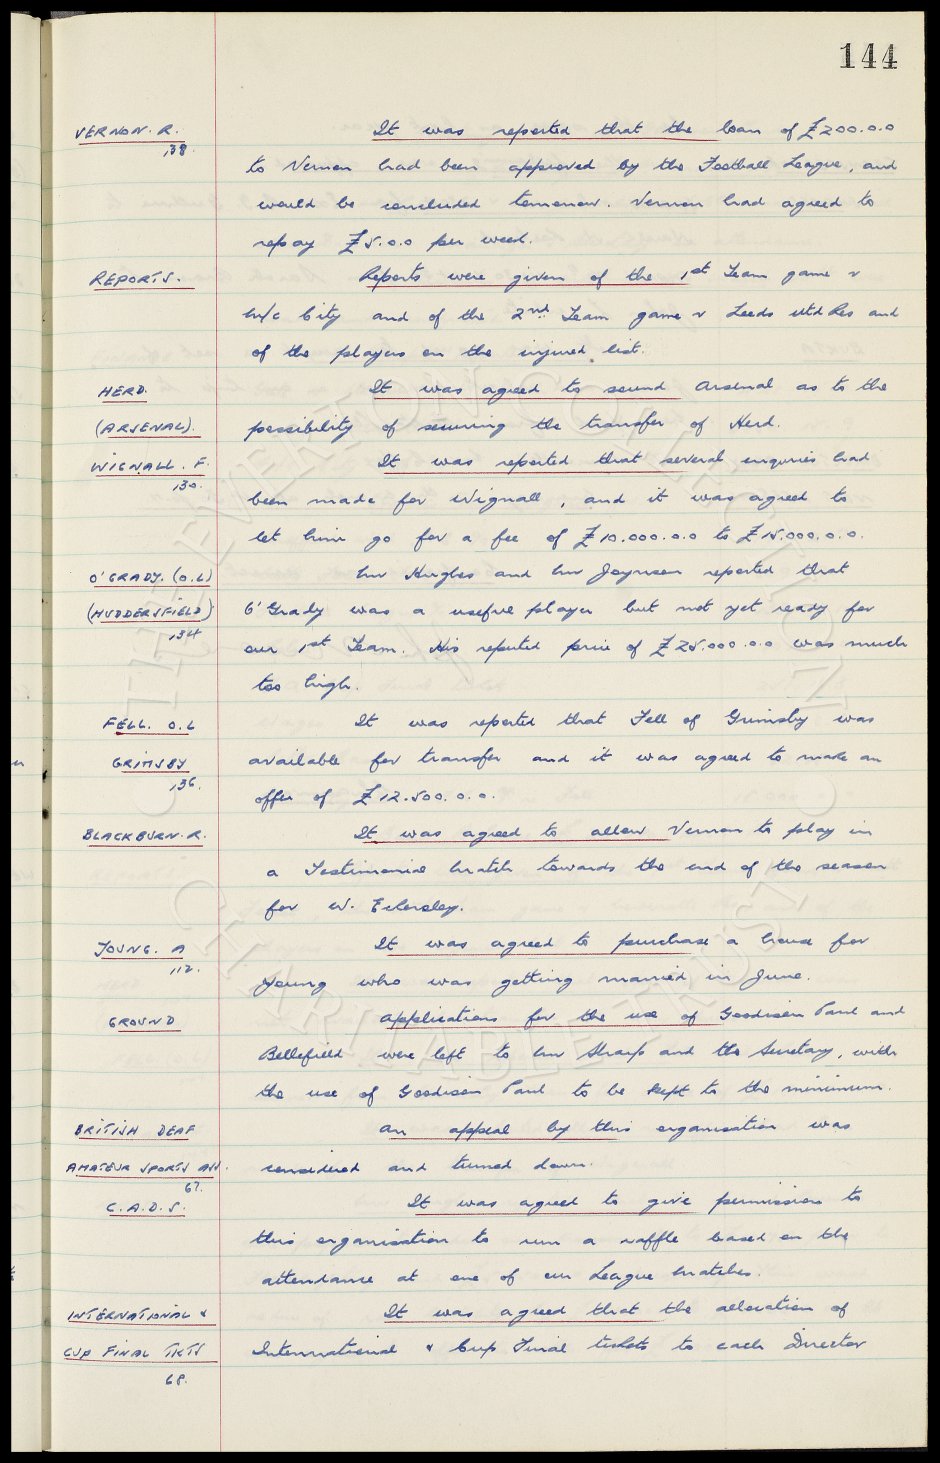 144
VERNON. R. It was reported that the loan of £200.0.0
138.
to Vernon had been approved by the Football League, and
would be concluded tomorrow. Vernon had agreed to
repay £5.0.0 per week.
REPORTS. Reports were given of the 1st Team game v
M/c City and of the 2nd Team game v Leeds Utd Res and
of the players on the injured list.
HERD. It was agreed to sound Arsenal as to the
(ARSENAL). possibility of securing the transfer of Herd.
WIGNALL. F. It was reported that several enquiries had
130.
been made for Wignall, and it was agreed to
let him go for a fee of £10.000.0.0 to £15.000.0.0.
O'GRADY. (O.L) Mr Hughes and Mr Joynson reported that
(HUDDERSFIELD) O'Grady was a useful player but not yet ready for
134
our 1st Team. His reputed price of £25.000.0.0 was much
too high.
FELL. O.L It was reported that Fell of Grimsby was
GRIMSBY available for transfer and it was agreed to make an
136.
offer of £12.500.0.0.
BLACKBURN. R. It was agreed to allow Vernon to play in
a Testimonial Match towards the end of the season
for W. Eckersley.
YOUNG. A It was agreed to purchase a house for
112.
Young who was getting married in June.
GROUND Applications for the use of Goodison Park and
Bellefield were left to Mr Sharp and the Secretary, with
the use of Goodison Park to be kept to the minimum.
BRITISH DEAF An appeal by this organisation was
AMATEUR SPORTS ASS. considered and turned down.
67.
C.A.D.S. It was agreed to give permission to
this organisation to run a raffle based on the
attendance at one of our League Matches.
INTERNATIONAL & It was agreed that the allocation of
CUP FINAL TKTS International & Cup Final tickets to each Director
68.
THE EVERTON COLLECTION
CHARITABLE TRUST